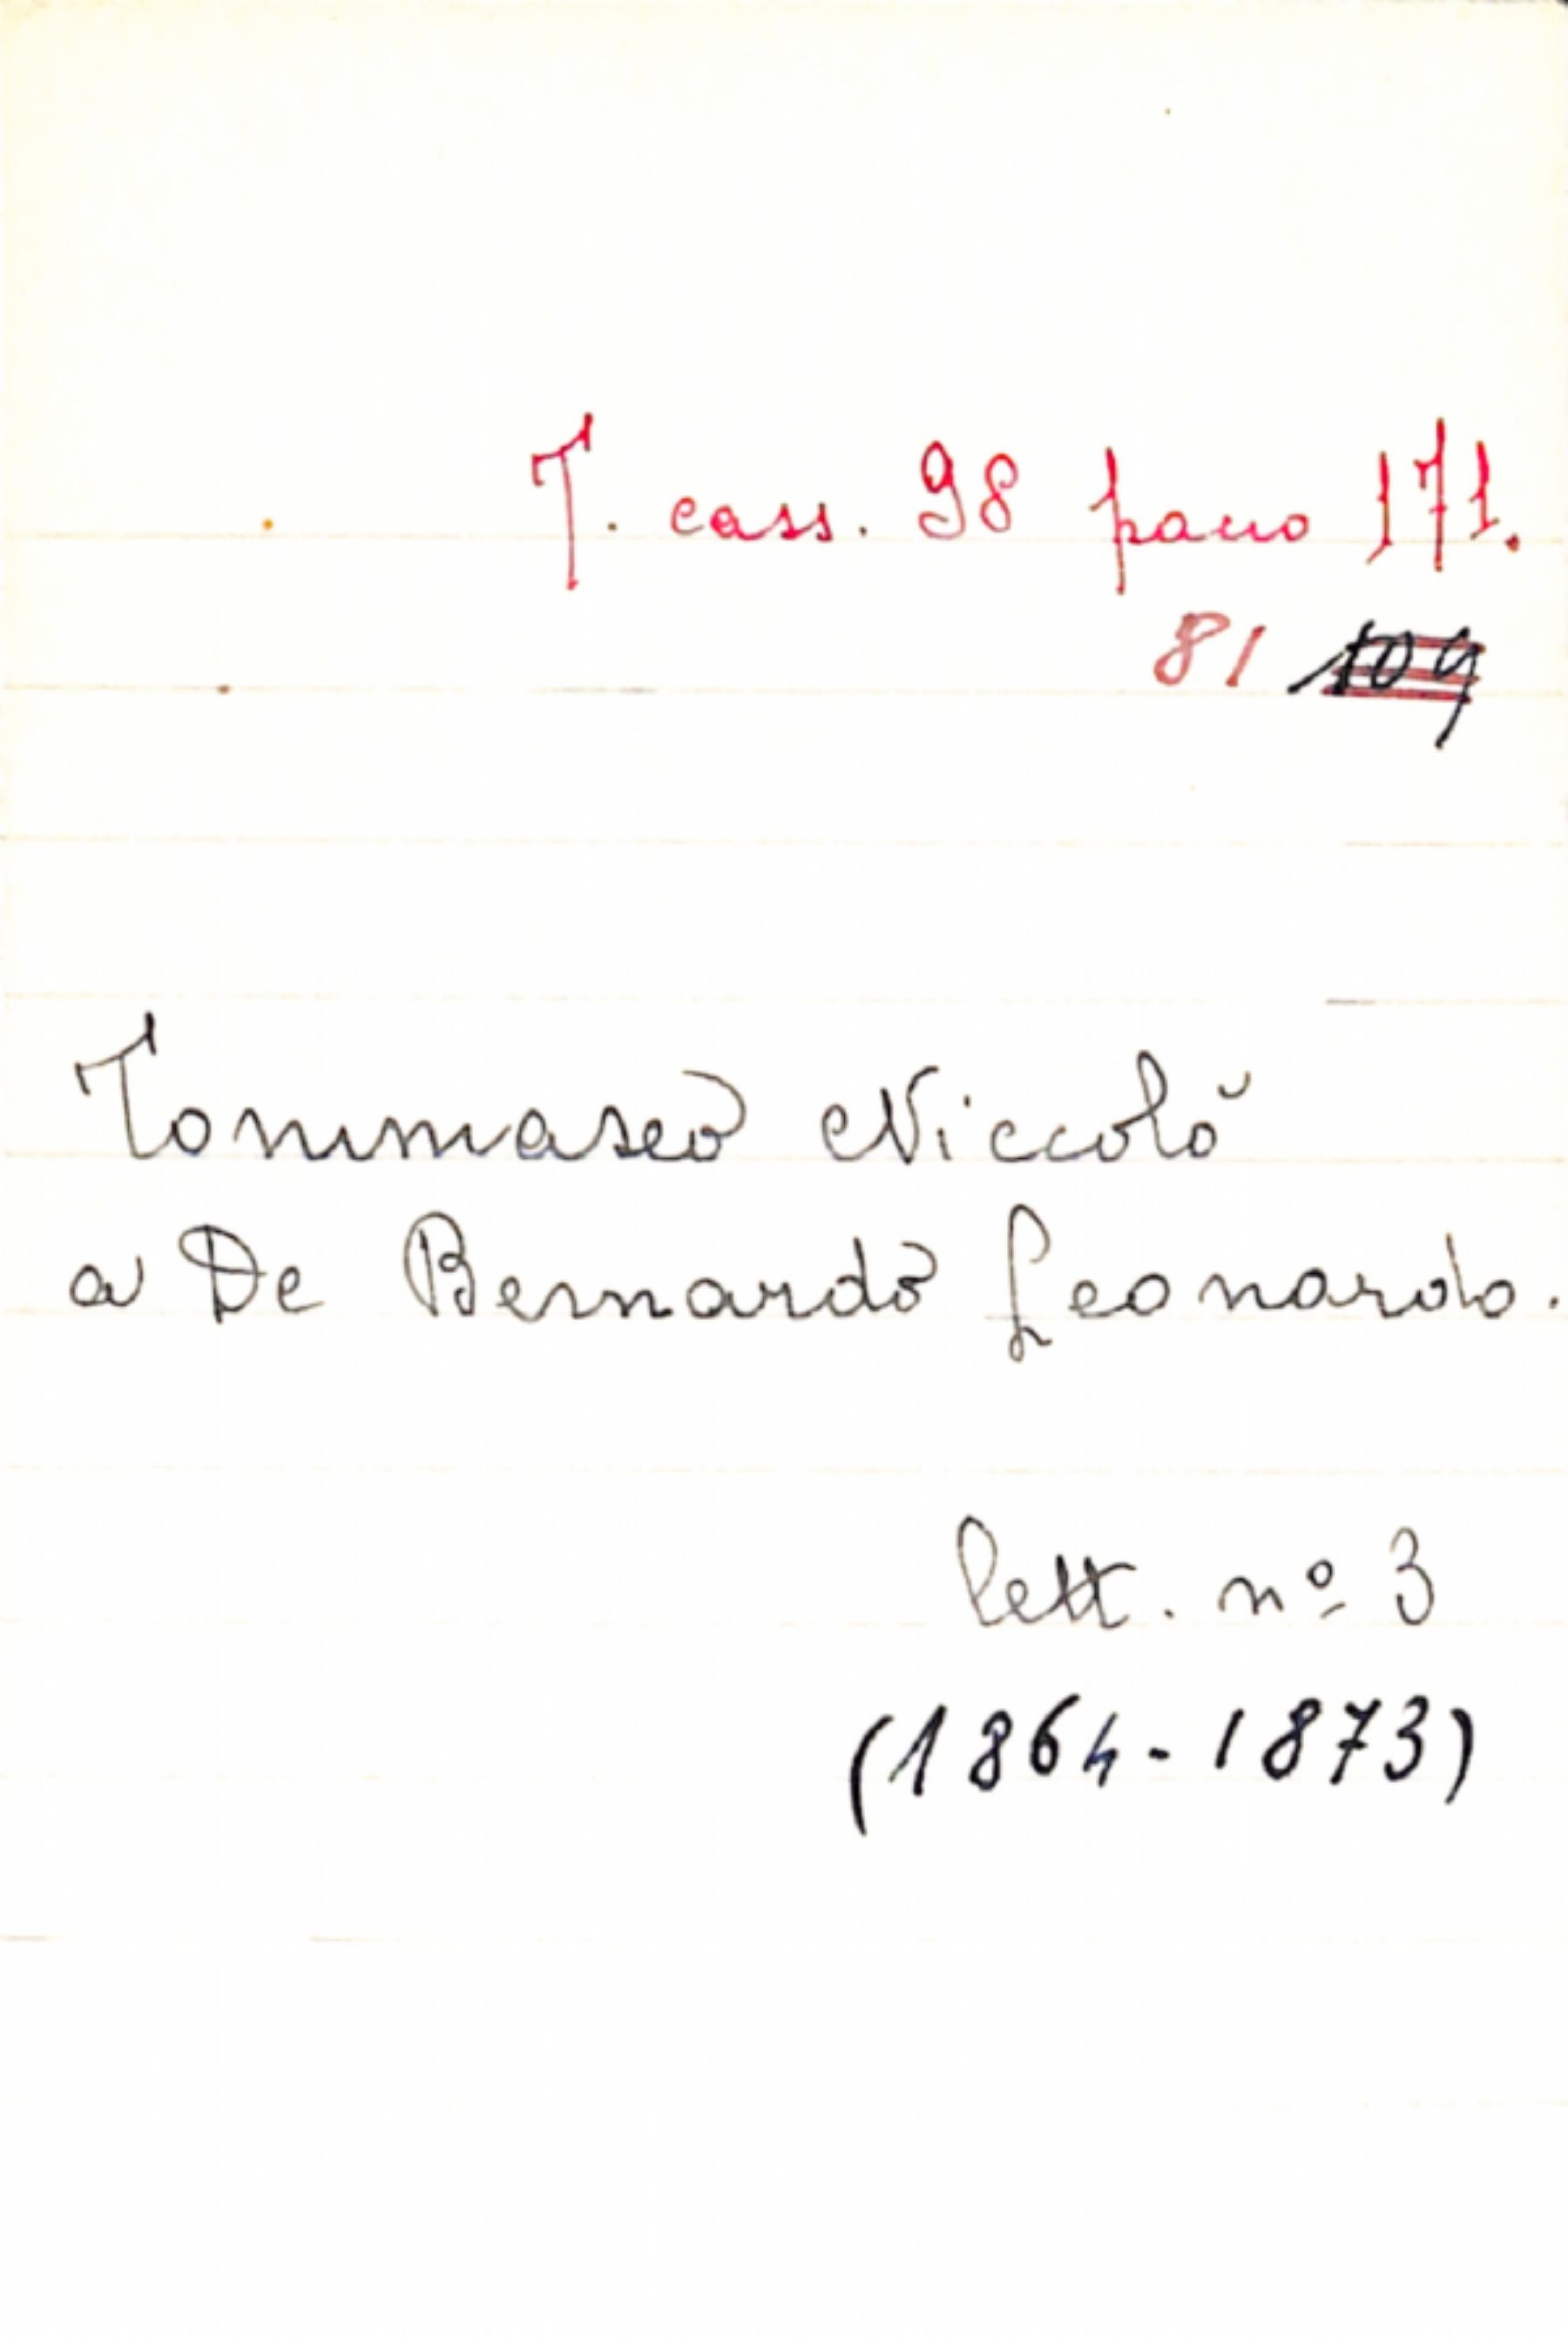 T. cass. 98 pacco 171.
81 109
Tommaseo Niccolò
a De Bernardo Leonardo.
lett. nº 3
(1864-1873)